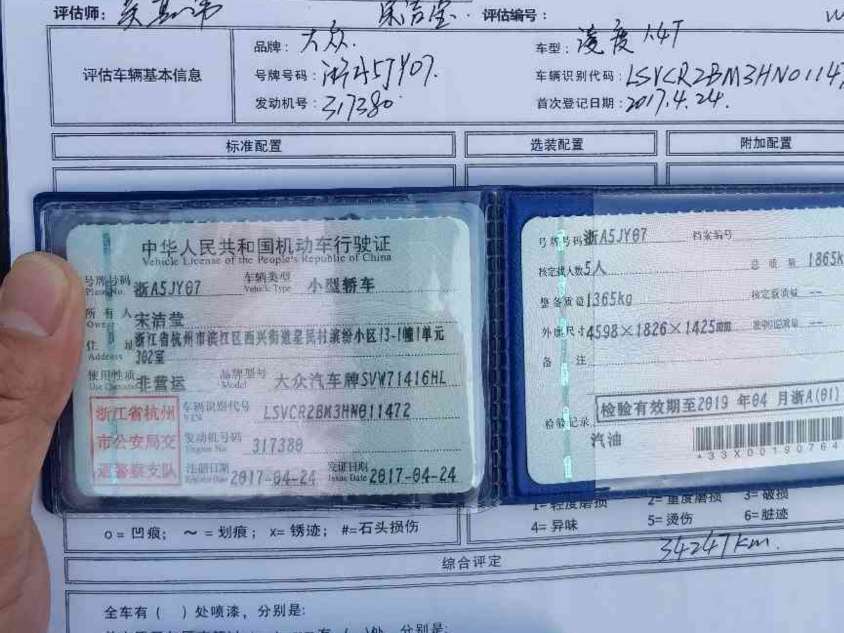 评估师：
宋洁莹
评估编号：
评估车辆基本信息
品牌：大众
车型：凌度 1.4T
号牌号码：浙A5JY07
车辆识别代码：LSVCR2BM3HN01147
发动机号：317380
首次登记日期：2017.4.24.
标准配置
选装配置
附加配置
中华人民共和国机动车行驶证
Vehicle License of the People's Republic of China
号牌号码
Plate No.
浙A5JY07
车辆类型
Vehicle Type
小型轿车
所有人
Owner
宋洁莹
住址
Address
浙江省杭州市滨江区西兴街道星民村缤纷小区13-1幢1单元
302室
使用性质
Use Character
非营运
品牌型号
Model
大众汽车牌SVW71416HL
浙江省杭州
市公安局交
通警察支队
车辆识别代号
VIN
LSVCR2BM3HN011472
发动机号码
Engine No.
317380
注册日期
Register Date
2017-04-24
发证日期
Issue Date
2017-04-24
号牌号码
浙A5JY07
档案编号
核定载人数
5人
总质量
1865k
整备质量
1365kg
核定载质量
--
外廓尺寸
4598×1826×1425mm
准牵引总质量
--
备注
检验记录
检验有效期至2019年04月浙A(01)
汽油
*33X00190764
o=凹痕；～=划痕；x=锈迹；#=石头损伤
1=轻度磨损
2=重度磨损
3=破损
4=异味
5=烫伤
6=脏迹
综合评定
34247km.
全车有（ ）处喷漆，分别是: